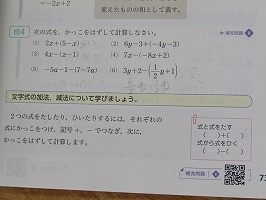 =-2x+2
変えたものの和として表す。
問4 次の式を、かっこをはずして計算しなさい。
補充問題
(1) 2x+(5-x) (2) 6y-3+(-4y-3)
(3) 4x-(x-1) (4) 7x-(-8x+2)
(5) -5a-1-(7-7a) (6) 3y+2-(1/2y+1)
文字式の加法、減法について学びましょう。
2つの式をたしたり、ひいたりするには、それぞれの
式にかっこをつけ、記号+、-でつなぎ、次に、
かっこをはずして計算します。
式と式をたす
( )+( )
式から式をひく
( )-( )
補充問題
73